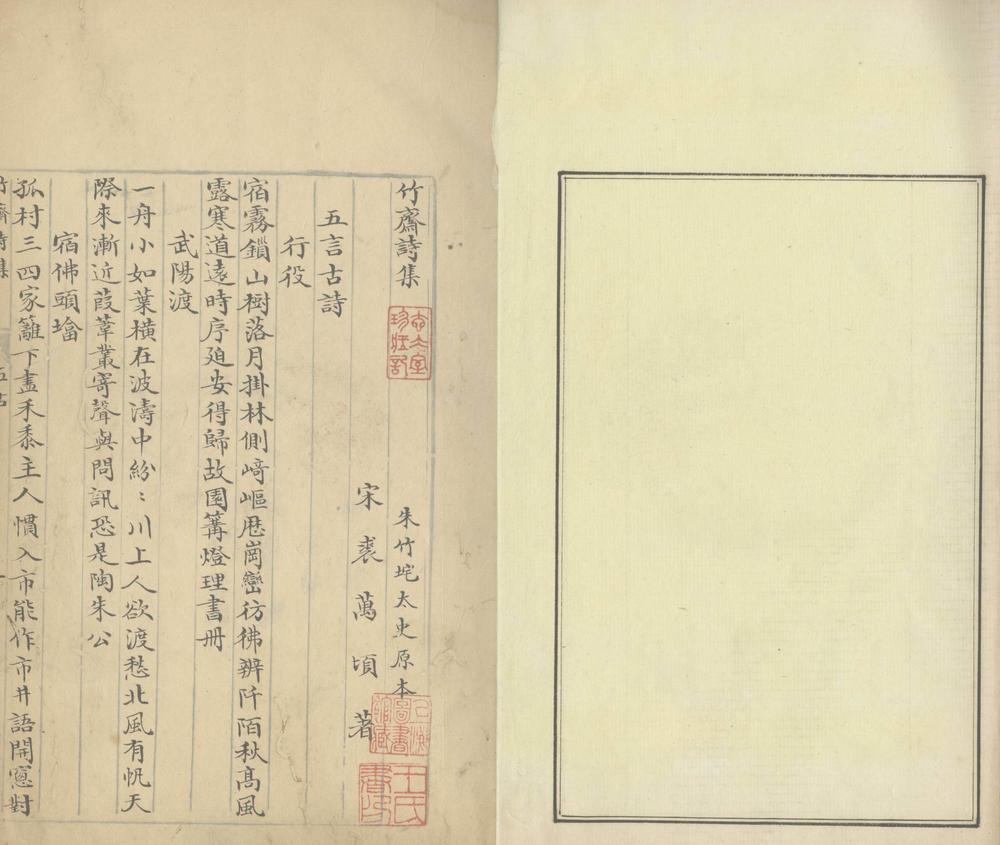 竹齋詩集
朱竹垞太史原本
宋裘萬頃著
五言古詩
行役
宿霧鎖山樹落月掛林側﨑嶇歷崗巒彷彿辨阡陌秋髙風
露寒道遠時序廹安得歸故園篝燈理書册
武陽渡
一舟小如葉橫在波濤中紛〻川上人欲渡愁北風有帆天
際來漸近葭葦叢寄聲與問訊恐是陶朱公
宿佛頭㙮
孤村三四家籬下盡禾黍主人慣入市能作市井語開窓對
竹齋詩集
五古
王氏